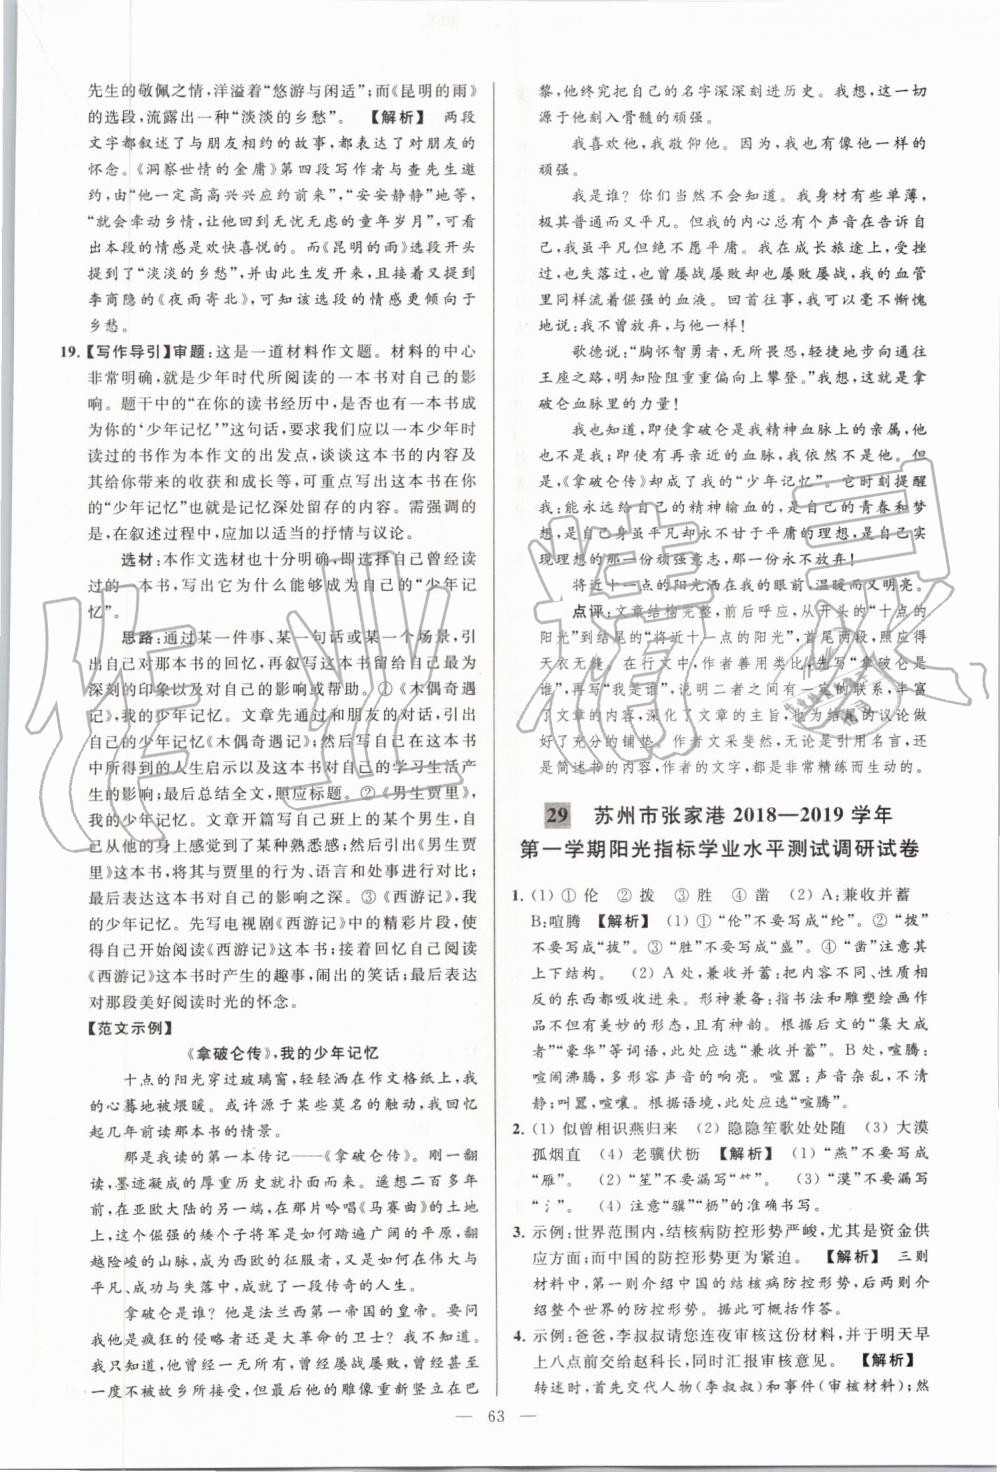 先生的敬佩之情,洋溢着“悠游与闲适”;而《昆明的雨》
的选段,流露出一种“淡淡的乡愁”。 【解析】 两段
文字都叙述了与朋友相约的故事,都表达了对朋友的
怀念。《洞察世情的金庸》第四段写作者与查先生邀
约,由“他一定高高兴兴应约前来”,“安安静静”地等,
“就会牵动乡情,让他回到无忧无虑的童年岁月”,可看
出本段的情感是欢快喜悦的。而《昆明的雨》选段开头
提到了“淡淡的乡愁”,并由此生发开来,且接着又提到
李商隐的《夜雨寄北》,可知该选段的情感更倾向于
乡愁。
19. 【写作导引】审题:这是一道材料作文题。材料的中心
非常明确,就是少年时代所阅读的一本书对自己的影
响。题干中的“在你的读书经历中,是否也有一本书成
为你的‘少年记忆’”这句话,要求我们应以一本少年时
读过的书作为本作文的出发点,谈谈这本书的内容及
其给你带来的收获和成长等,可重点写出这本书在你
的“少年记忆”中,就是你记忆深处留存的内容。需强调的
是,在叙述过程中,应加以适当的抒情与议论。
选材:本作文选材也十分明确,即选择自己曾经读
过的一本书,写出它为什么能够成为自己的“少年记
忆”。
思路:通过某一件事、某一句话或某一个场景,引
出自己对那本书的回忆,再叙写这本书留给自己最为
深刻的印象以及对自己的影响或帮助。①《木偶奇遇
记》,我的少年记忆。文章先通过和朋友的对话,引出
自己的少年记忆《木偶奇遇记》;然后写自己在这本书
中所得到的人生启示以及对自己的学习生活产
生的影响;最后总结全文,照应标题。②《男生贾里》,
我的少年记忆。文章开篇写自己班上某个男生,在他
身上发现了某种熟悉感;然后引出自己曾读过的《男生贾
里》这本书以及贾里的行为、语言和处事对自己一直以
来的影响;最后表达《男生贾里》对自己的影响之深。
③《西游记》,我的少年记忆。先写电视剧《西游记》中的精彩片段,使
得自己开始阅读《西游记》这本书;接着回忆自己阅读
《西游记》这本书时产生的趣事,闹出的笑话;最后表达
对那段美好阅读时光的怀念。
【范文示例】
《拿破仑传》,我的少年记忆
十点的阳光穿过玻璃窗,轻轻洒在作文格纸上,我
的心蓦地被煨暖。或许源于某些莫名的触动,我回忆
起几年前读那本书的情景。
那是我读的第一本传记——《拿破仑传》。刚一翻
读,墨迹凝成的厚重历史就扑面而来。遥想二百多年
前,在亚欧大陆的另一端,在那片吟唱《马赛曲》的土地
上,这个倔强的矮个子将军是如何踏遍广阔的平原,翻
越险峻的山脉,成为西欧的征服者,又是如何在伟大与
平凡、成功与失落中,成就了一段传奇的人生。
拿破仑是谁?他是法兰西第一帝国的皇帝。要问
我他是疯狂的侵略者还是大革命的卫士?我不知道。
我只知道,他曾一无所有,曾屡战屡败,曾经甚至
一度不被故乡所接受,但最后,他的雕像重新竖立在巴
黎,他终究把自己的名字深深刻进历史。我想,这一切
源于他刻入骨髓的顽强。
我喜欢他,我敬仰他。因为,我也有像他一样的
顽强。
我是谁?你们当然不会知道。我身材有些单薄,
极其普通而又平凡。但我的内心总有个声音在告诉自
己,我虽平凡但绝不愿平庸。我在成长旅途上,受挫
过,也失落过,也曾屡战屡败却也屡败屡战,我的血管
里同样流着倔强的血液。回首往事,我可以毫不惭愧
地说:我不曾放弃,与他一样!
歌德说:“胸怀智勇者,无所畏恐,轻捷地步向通往
王座之路,明知险阻重重偏向上攀登。”我想,这就是拿
破仑血脉里的力量!
我也知道,即使拿破仑是我精神血脉上的亲属,他
也不会知道我;即使有再亲近的血脉,我也无法像他。但
是,《拿破仑传》却成了我的“少年记忆”。它时刻提醒
我:能永远给自己的精神输血的,是自己的青春和梦
想,是自己身虽平凡却永不甘于平庸的理想,是自己实
现理想的那一份顽强意志,那一份永不放弃!
将近十一点的阳光洒在我的眼前,温暖而又明亮。
点评:文章结构完整,前后呼应,从开头的“十点的
阳光”到结尾的“将近十一点的阳光”,首尾两段,照应得
天衣无缝。在行文中,作者善于对比,先写“拿破仑是
谁”,再写“我是谁”,说明二者之间有一定的联系,丰富
了文章的内容,深化了文章的主旨,也为结尾的议论做
好了充分的铺垫。作者文采斐然,无论是引用名言,还
是简述书的内容,作者的文字,都是非常精练而生动的。
29 苏州市张家港 2018—2019 学年
第一学期阳光指标学业水平测试调研试卷
1. (1) ① 伦 ② 拨 ③ 胜 ④ 凿 (2) A:兼收并蓄
B:喧腾 【解析】 (1) ①“伦”不要写成“纶”。②“拨”
不要写成“拔”。③“胜”不要写成“盛”。④“凿”注意其
上下结构。 (2) A 处,兼收并蓄:把内容不同、性质相
反的东西都吸收进来。形神兼备:指书法和雕塑绘画作
品不但有美妙的形式,且有神韵。根据后文的“集大成
者”“豪华”等词语,此处应选“兼收并蓄”。B 处,喧腾:
喧闹沸腾,多形容声音的响亮。喧嚣:声音杂乱,不清
静;叫嚣,喧嚷。根据语境,此处应选“喧腾”。
2. (1) 似曾相识燕归来 (2) 隐隐笙歌处处随 (3) 大漠
孤烟直 (4) 老骥伏枥 【解析】 (1) “燕”不要写成
“雁”。 (2) “笙”不要漏写“⺮”。 (3) “漠”不要漏写
“氵”。 (4) 注意“骥”“枥”的准确书写。
3. 示例:世界范围内,结核病防控形势严峻,尤其是资金供
应方面;而中国的防控形势更为紧迫。 【解析】 三则
材料中,第一则介绍中国的结核病防控形势,后两则介
绍整个世界的防控形势。据此可概括作答。
4. 示例:爸爸,李叔叔请您连夜审核这份材料,并于明天早
上八点前交给赵科长,同时汇报审核意见。 【解析】
转述时,首先交代人物(李叔叔)和事件(审核材料);然
— 63 —